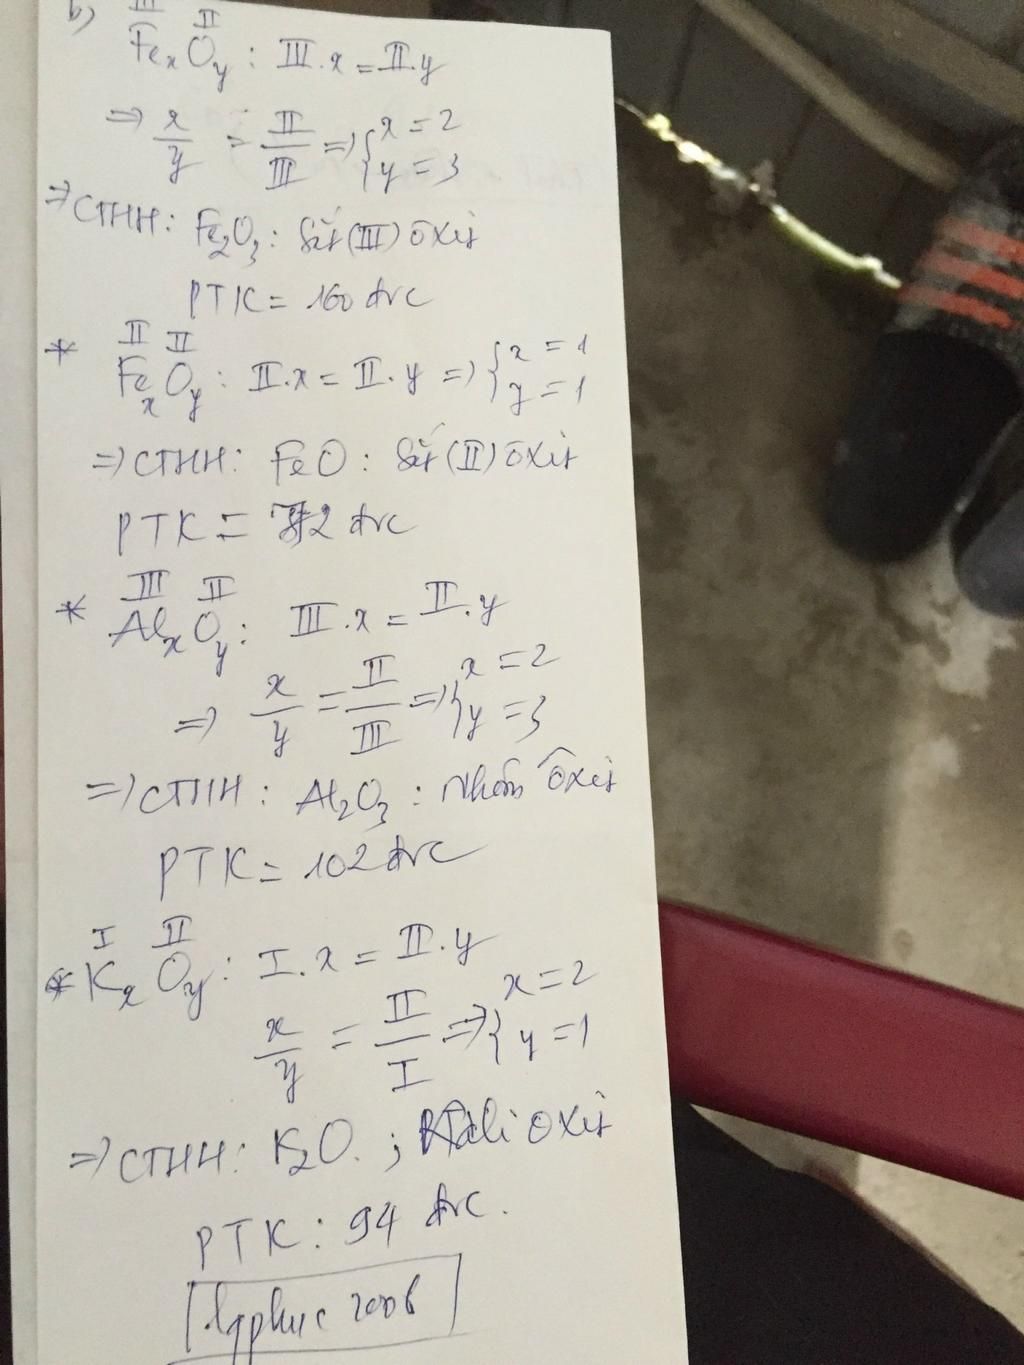 b) III II
FexOy : III.x = II.y
=> x/y = II/III => { x = 2
y = 3
=> CTHH: Fe2O3 : Sắt (III) ôxit
PTK = 160 đvc
* II II
FexOy : II.x = II.y => { x = 1
y = 1
=> CTHH: FeO : Sắt (II) ôxit
PTK = 72 đvc
* III II
AlxOy : III.x = II.y
=> x/y = II/III => { x = 2
y = 3
=> CTHH : Al2O3 : Nhôm ôxit
PTK = 102 đvc
* I II
KxOy : I.x = II.y
x/y = II/I => { x = 2
y = 1
=> CTHH: K2O. ; Kali oxit
PTK : 94 đvc.